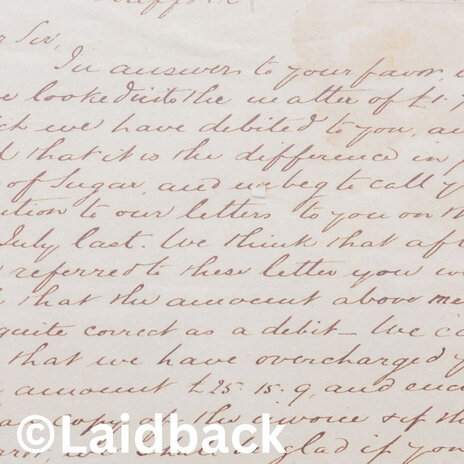 r Sir,
In answer to your favor,
e looked into the matter of £1.
ch we have debited to you, an
d that it is the difference in
of Sugar, and we beg to call y
ution to our letters to you on th
July last. We think that aft
referred to these letter you w
that the amount above me
quite correct as a debit - We
that we have overcharged y
amount £25.15.9, and enc
a copy of the invoice & if th
shall be glad if you
©Laidback